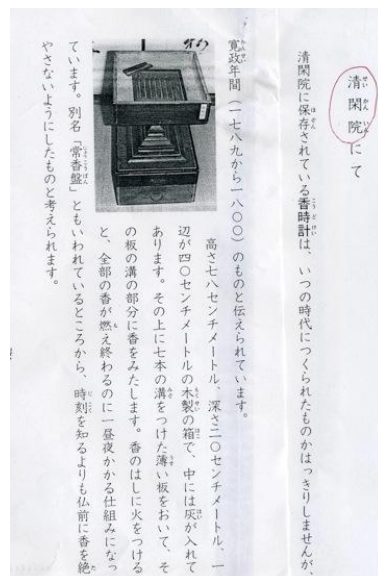 清閑院にて
清閑院に保存されている香時計は、いつの時代につくられたものかはっきりしませんが、
寛政年間(一七八九から一八〇〇)のものと伝えられています。
高さ七八センチメートル、深さ二〇センチメートル、一
辺が四〇センチメートルの木製の箱で、中には灰が入れて
あります。その上に七本の溝をつけた薄い板をおいて、そ
の板の溝の部分に香をみたします。香のはしに火をつける
と、全部の香が燃え終わるのに一昼夜かかる仕組みになっ
ています。別名「常香盤」ともいわれているところから、時刻を知るよりも仏前に香を絶
やさないようにしたものと考えられます。